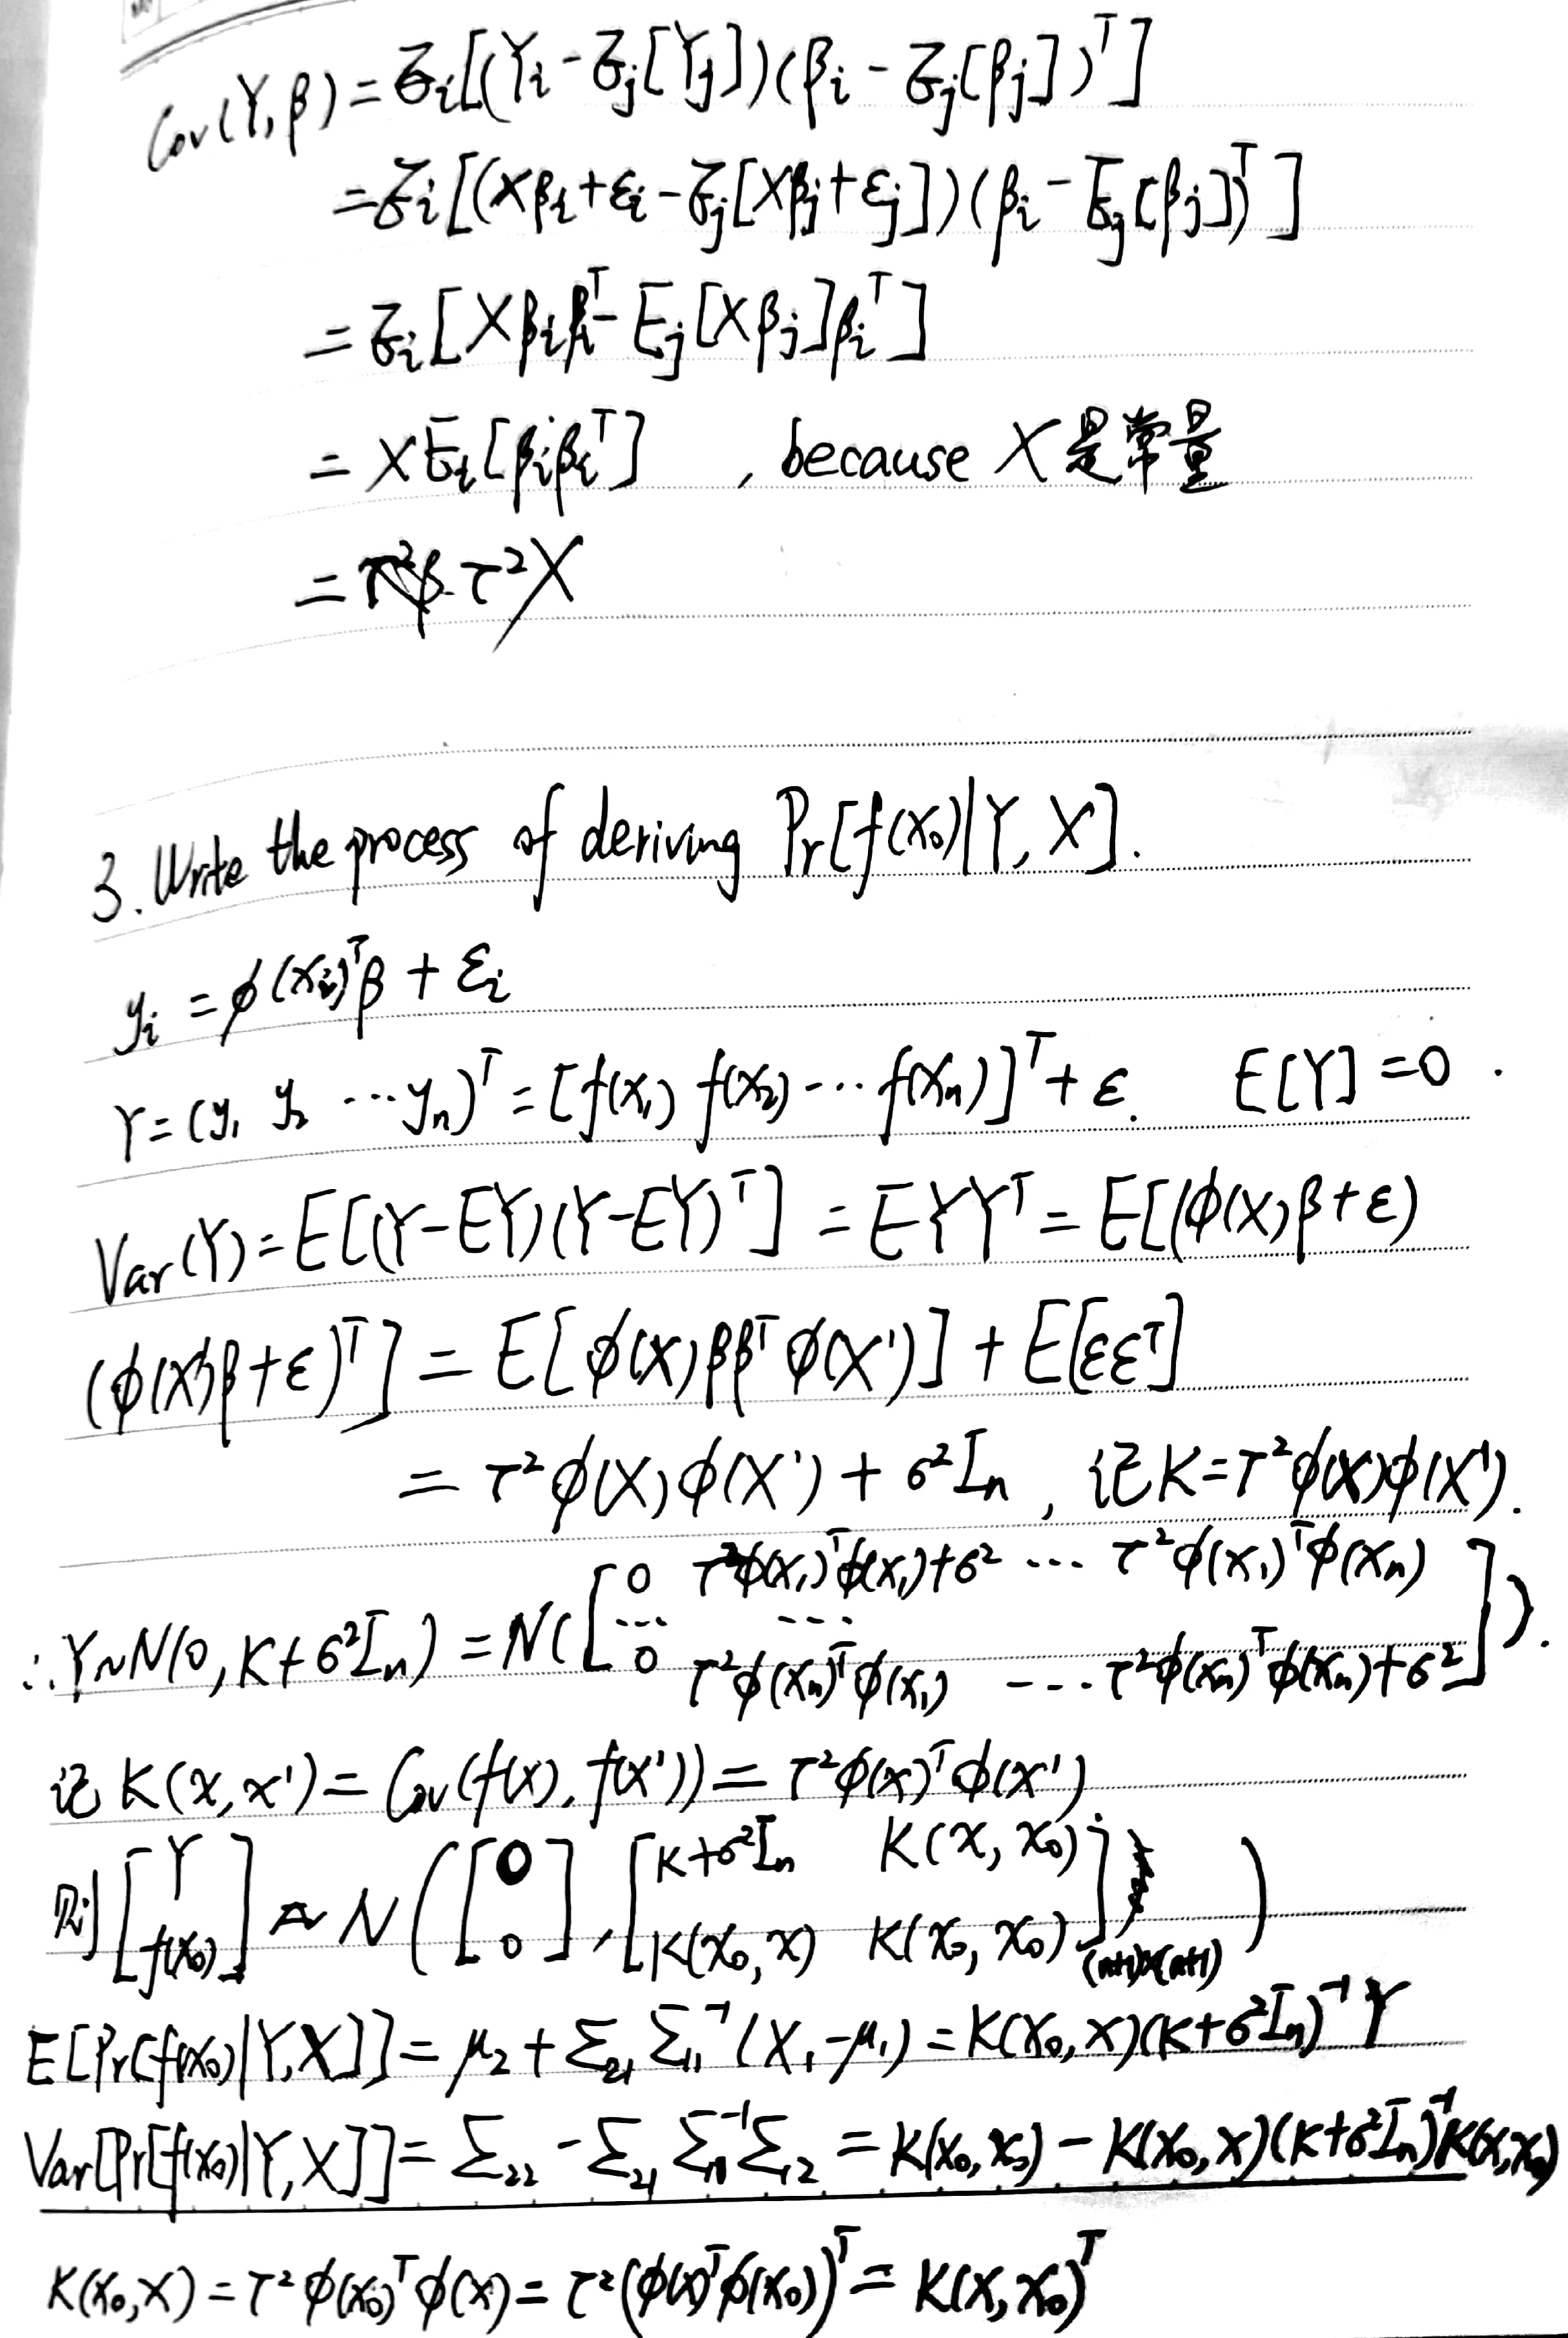 Cov(Y,β) = E_i[(Y_i - E_j[Y_j])(β_i - E_j[β_j])^T]
= E_i[(Xβ_i + ε_i - E_j[Xβ_j + ε_j])(β_i - E_j[β_j])^T]
= E_i[Xβ_iβ_i^T - E_j[Xβ_j]β_i^T]
= X E_i[β_iβ_i^T] , because X 是常量
= τ²X
3. Write the process of deriving Pr[f(x₀)|Y, X].
y_i = φ(x_i)^Tβ + ε_i
Y = (y₁ y₂ ⋯ y_n)^T = [f(x₁) f(x₂) ⋯ f(x_n)]^T + ε. E[Y] = 0.
Var(Y) = E[(Y-EY)(Y-EY)^T] = EYY^T = E[(φ(X)β+ε)
(φ(X')β+ε)^T] = E[φ(X)ββ^Tφ(X')] + E[εε^T]
= τ²φ(X)φ(X') + σ²I_n , 记 K = τ²φ(X)φ(X').
∴ Y ~ N(0, K+σ²I_n) = N([0 τ²φ(x₁)^Tφ(x₁)+σ² ⋯ τ²φ(x₁)^Tφ(x_n)
⋯ ⋯
0 τ²φ(x_n)^Tφ(x₁) ⋯ τ²φ(x_n)^Tφ(x_n)+σ²]).
记 K(x, x') = Cov(f(x), f(x')) = τ²φ(x)^Tφ(x').
则 [Y f(x₀)] ~ N([0 0], [K+σ²I_n K(x, x₀) K(x₀, x) K(x₀, x₀)]_(n+1)×(n+1))
E[Pr[f(x₀)|Y,X]] = μ₂ + Σ₂₁Σ₁₁⁻¹(X₁-μ₁) = K(x₀,x)(K+σ²I_n)⁻¹Y
Var[Pr[f(x₀)|Y,X]] = Σ₂₂ - Σ₂₁Σ₁₁⁻¹Σ₁₂ = K(x₀,x₀) - K(x₀,x)(K+σ²I_n)⁻¹K(x,x₀)
K(x₀,x) = τ²φ(x₀)^Tφ(x) = τ²(φ(x)^Tφ(x₀))^T = K(x,x₀)^T